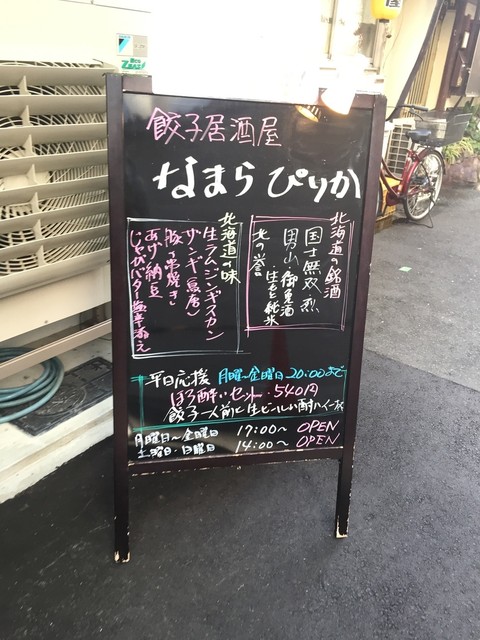 餃子居酒屋
なまら ぴりか
北海道の銘酒
国士無双 烈
男山 御免酒
・生もと純米
北の誉
北海道の味
生ラムジンギスカン
ザンギ(鳥唐)
豚串焼き
あげ納豆
じゃがバター塩辛添え
平日応援 月曜〜金曜日 20:00まで
ほろ酔いセット・540円
餃子一人前に生ビールor酎ハイ一杯
月曜日〜金曜日 17:00〜 OPEN
土曜日・日曜日 14:00〜 OPEN